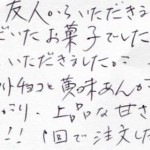 友人からいただきま
だいたお菓子でした
いただきました。
ットチョコと黄味あんが
っくり、上品な甘さ
!! 1回で注文した